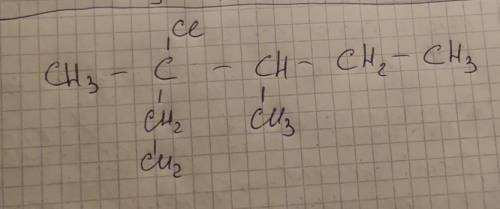 Cl
CH3 - C - CH - CH2 - CH3
CH2 CH3
CH2